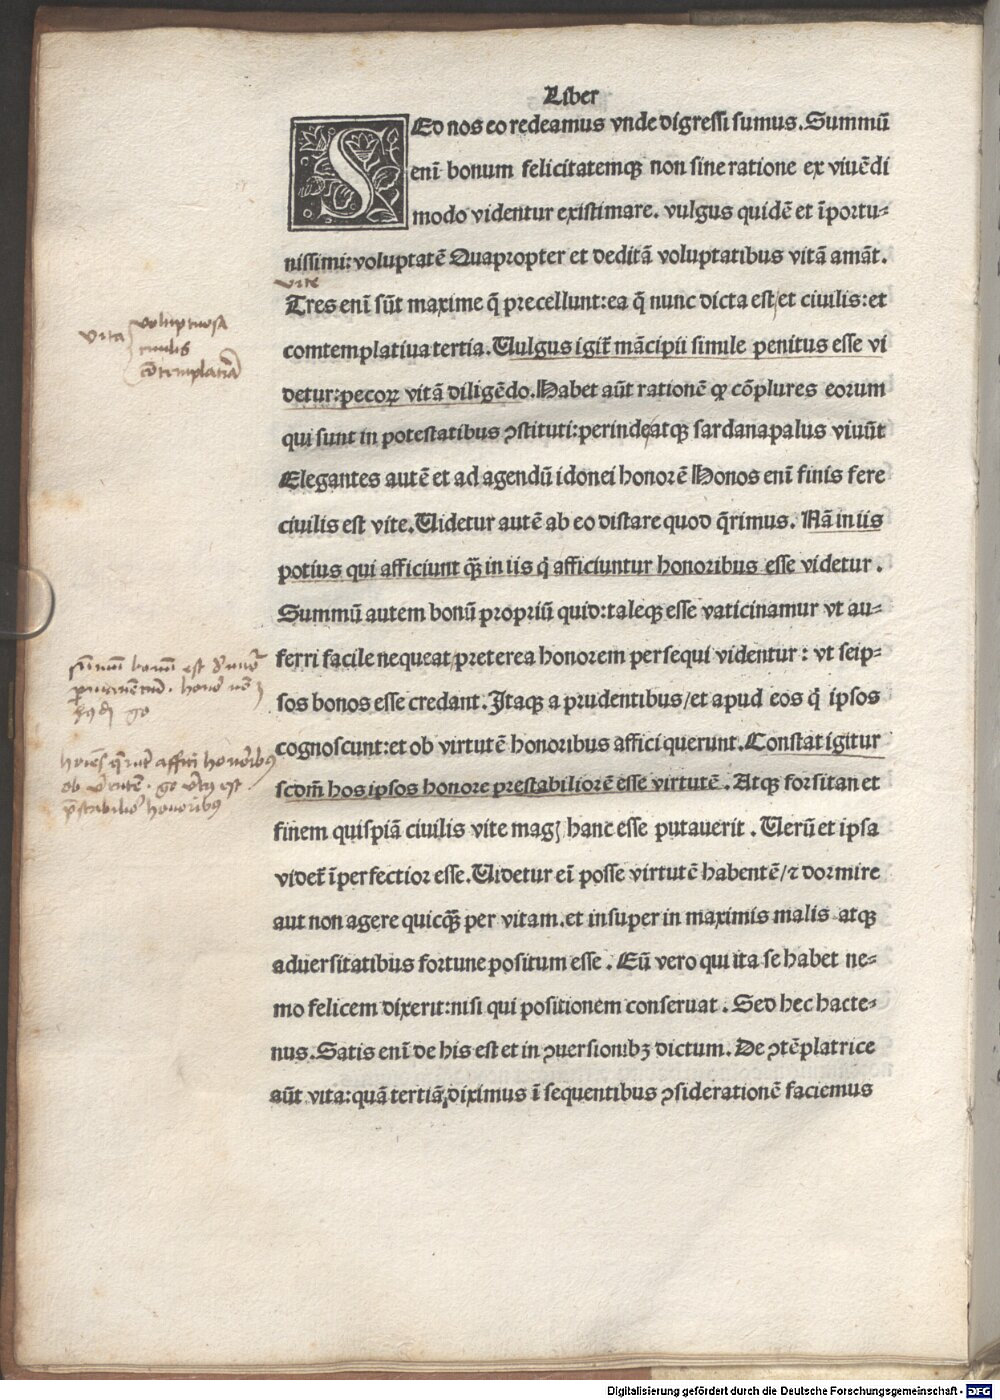 Liber
SEd nos eo redeamus vnde digressi sumus. Summũ
enĩ bonum felicitatemqꝫ non sine ratione ex viuẽdi
modo videntur existimare. vulgus quidẽ et ĩportu-
nissimi: voluptatẽ Quapropter et deditã voluptatibus vitã amãt.
vite
Tres enĩ sũt maxime q̃ precellunt: ea q̃ nunc dicta est/ et ciuilis: et
comtemplatiua tertia. Uulgus igit̃ mãcipii simile penitus esse vi
detur: pecoꝝ vitã diligẽdo. Habet aũt rationẽ ꝙ cõplures eorum
qui sunt in potestatibus ꝯstituti: perinde/atqꝫ sardanapalus viuũt
Elegantes autẽ et ad agendũ idonei honorẽ Honos enĩ finis fere
ciuilis est vite. Uidetur autẽ ab eo distare quod q̃rimus. Nã in iis
potius qui afficiunt qꝫ̃ in iis q̇ afficiuntur honoribus esse videtur.
Summũ autem bonũ propriũ quid: taleqꝫ esse vaticinamur vt au-
ferri facile nequeat/ preterea honorem persequi videntur: vt seip-
sos bonos esse credant. Itaqꝫ a prudentibus/ et apud eos q̇ ipsos
cognoscunt: et ob virtutẽ honoribus affici querunt. Constat igitur
scdm̃ hos ipsos honore prestabiliorẽ esse virtutẽ. Atqꝫ forsitan et
finem quispiã ciuilis vite magꝫ hanc esse putauerit. Uerũ et ipsa
videt̃ ĩperfectior esse. Uidetur eĩ posse virtutẽ habentẽ/ ⁊ dormire
aut non agere quicqꝫ̃ per vitam. et insuper in maximis malis atqꝫ
aduersitatibus fortune positum esse. Eũ vero qui ita se habet ne-
mo felicem dixerit: nisi qui positionem conseruat. Sed hec hacte-
nus. Satis enĩ de his est et in ꝯuersionibꝫ dictum. De ꝯtẽplatrice
aũt vita: quã tertiã diximus ĩ sequentibus ꝯsiderationẽ faciemus
vita
voluptuosa
ciuilis
cõtemplatiã
bonũ est
honor
go
affici honoribꝰ
ob
go est
honoribꝰ
Digitalisierung gefördert durch die Deutsche Forschungsgemeinschaft - DFG